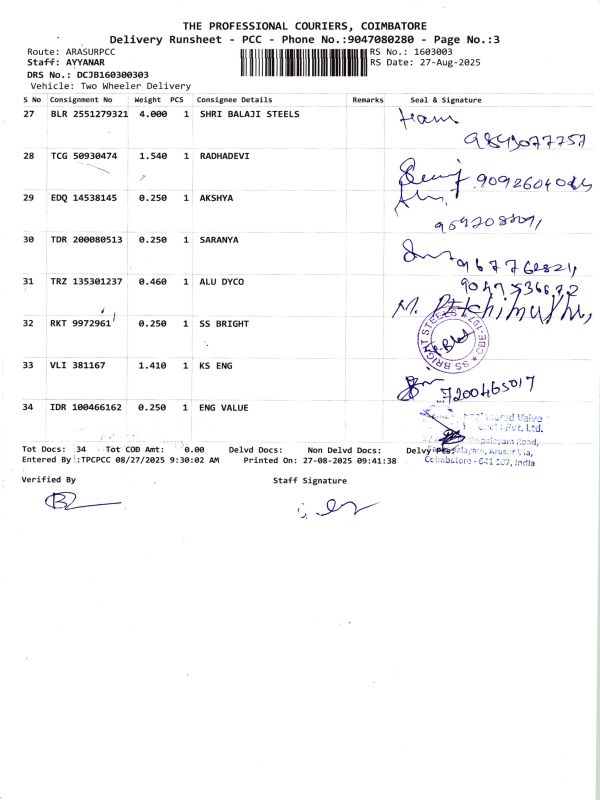 THE PROFESSIONAL COURIERS, COIMBATORE
Delivery Runsheet - PCC - Phone No.:9047080280 - Page No.:3
Route: ARASURPCC
RS No.: 1603003
Staff: AYYANAR
RS Date: 27-Aug-2025
DRS No.: DCJB160300303
Vehicle: Two Wheeler Delivery
S No Consignment No Weight PCS Consignee Details Remarks Seal & Signature
27 BLR 2551279321 4.000 1 SHRI BALAJI STEELS
9843077757
28 TCG 50930474 1.540 1 RADHADEVI
29 EDQ 14538145 0.250 1 AKSHYA
30 TDR 200080513 0.250 1 SARANYA
31 TRZ 135301237 0.460 1 ALU DYCO
32 RKT 9972961 0.250 1 SS BRIGHT
SS BRIGHT STEELS
33 VLI 381167 1.410 1 KS ENG
7200465017
34 IDR 100466162 0.250 1 ENG VALUE
Valve
Pvt. Ltd.
Road,
Arasur Via,
Coimbatore - 641 107, India
Tot Docs: 34 Tot COD Amt: 0.00 Delvd Docs: Non Delvd Docs: Delvy
Entered By :TPCPCC 08/27/2025 9:30:02 AM Printed On: 27-08-2025 09:41:38
Verified By Staff Signature